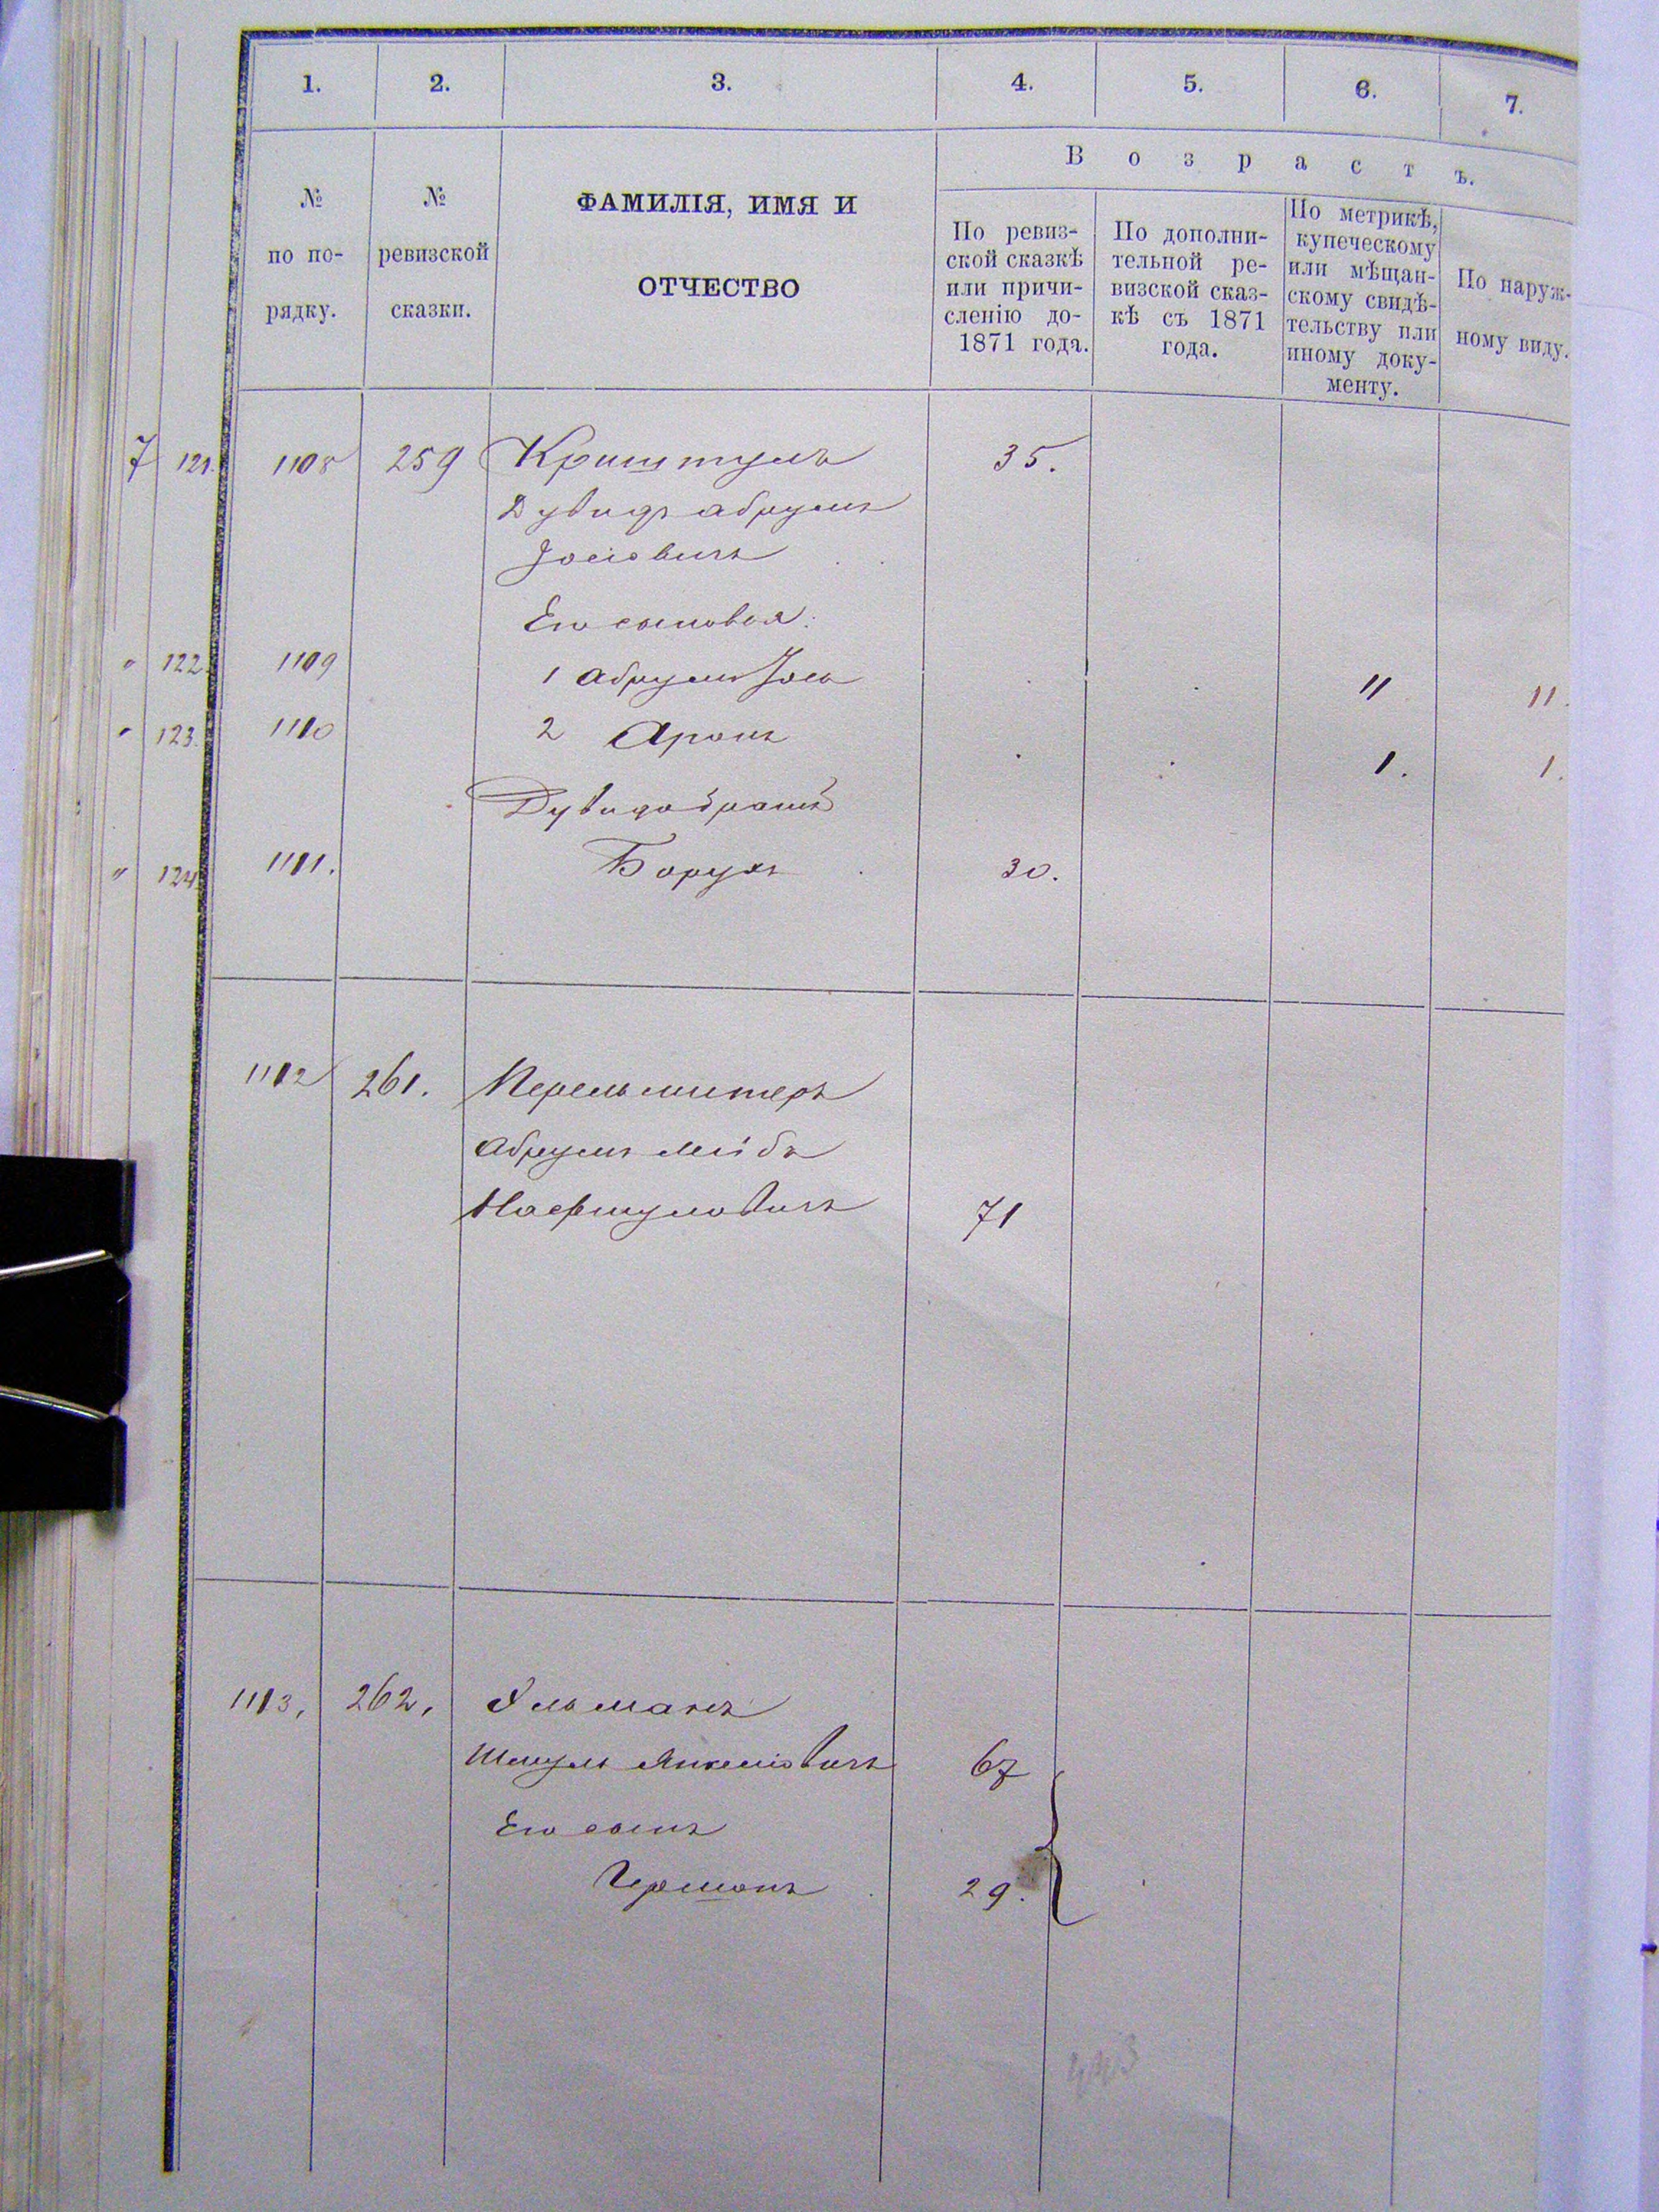 1. 2. 3. 4. 5. 6. 7.
№ по по-рядку.
№ ревизской сказки.
ФАМИЛІЯ, ИМЯ И
ОТЧЕСТВО
Возрастъ.
По ревиз-
ской сказкѣ
или причи-
сленію до-
1871 года.
По дополни-
тельной ре-
визской сказ-
кѣ съ 1871
года.
По метрикѣ,
купеческому
или мѣщан-
скому свидѣ-
тельству или
иному доку-
менту.
По наруж-
ному виду.
7 121. 1108 259 Криштулъ 35.
Дувидъ Абрумъ
Іосіовичъ
Его сыновья:
" 122. 1109 1 Абрумъ Іось 11 11.
" 123. 1110 2 Аронъ 1. 1.
Дувида братъ
" 124. 1111. Борухъ 30.
1112 261. Перельмитеръ
Абрумъ Лейба
Нафтуловичъ 71
1113, 262, Ульманъ
Шмуль Янкеліовичъ 67
Его сынъ
Гершонъ 29.
443